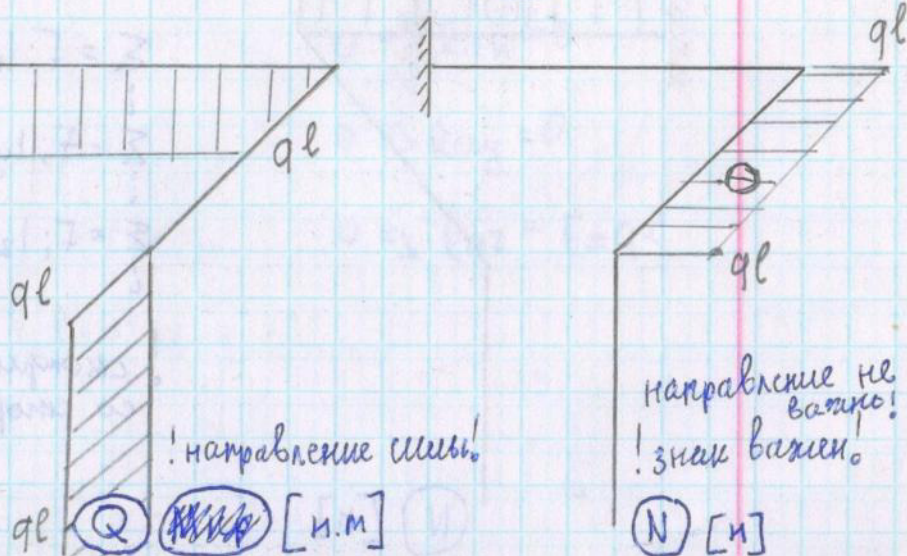 ql
ql
ql
ql
ql
⊖
!направление силы!
Q [н.м]
направление не
важно!
!знак важен!
N [н]